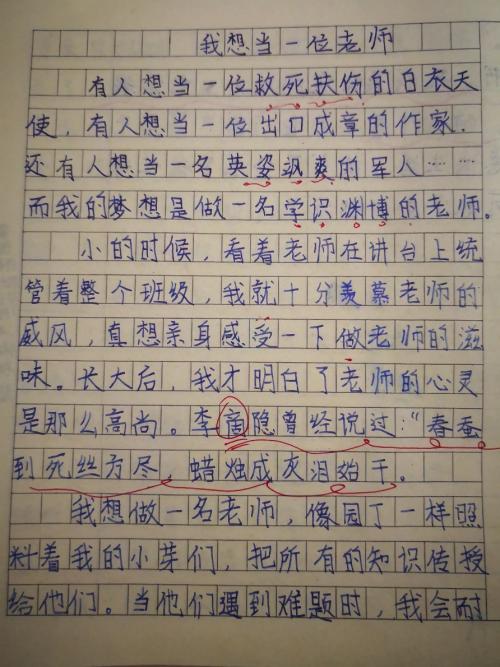 我想当一位老师
有人想当一位救死扶伤的白衣天
使，有人想当一位出口成章的作家，
还有人想当一名英姿飒爽的军人……
而我的梦想是做一名学识渊博的老师。
小的时候，看着老师在讲台上统
管着整个班级，我就十分羡慕老师的
威风，真想亲身感受一下做老师的滋
味。长大后，我才明白了老师的心灵
是那么高尚。李商隐曾经说过：“春蚕
到死丝方尽，蜡烛成灰泪始干。
我想做一名老师，像园丁一样照
料着我的小芽们，把所有的知识传授
给他们。当他们遇到难题时，我会耐